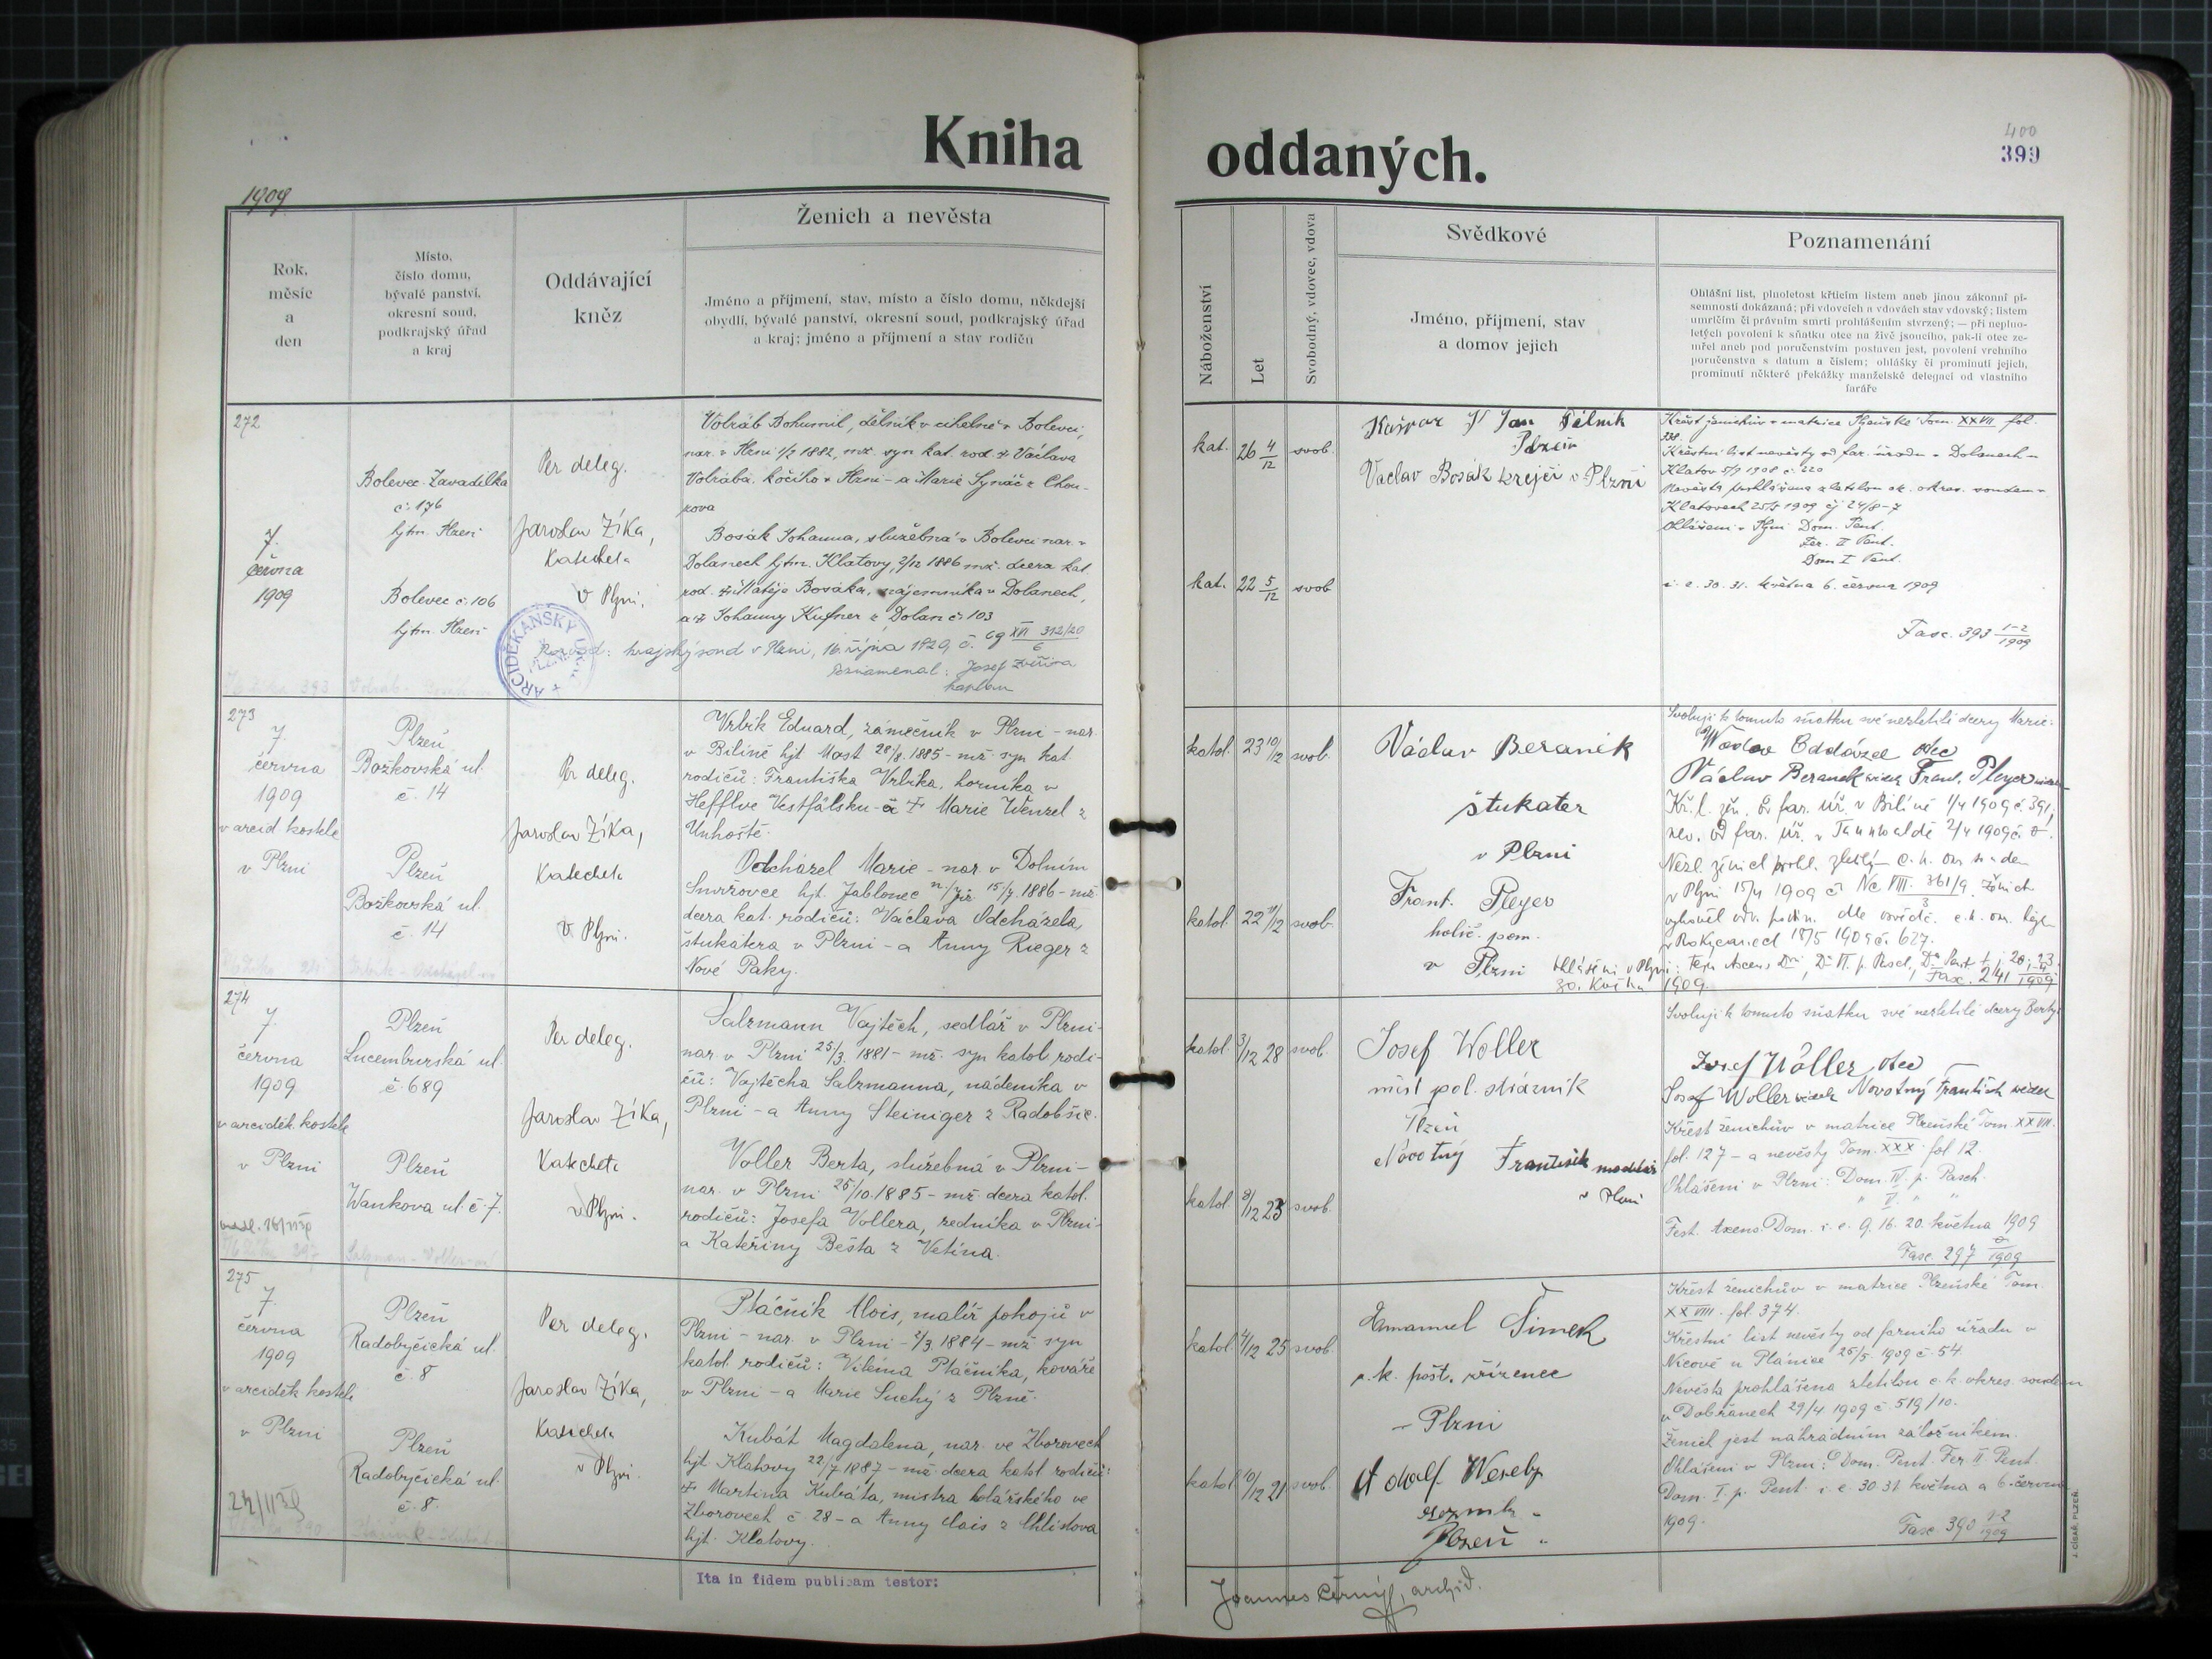 Kniha
oddaných.
400
399
1909
Rok,
měsíc
a
den
Místo,
číslo domu,
bývalé panství,
okresní soud,
podkrajský úřad
a kraj
Oddávající
kněz
Ženich a nevěsta
Jméno a příjmení, stav, místo a číslo domu, někdejší
obydlí, bývalé panství, okresní soud, podkrajský úřad
a kraj; jméno a příjmení a stav rodičů
Náboženství
Let
Svobodný, vdovec, vdova
Svědkové
Jméno, příjmení, stav
a domov jejich
Poznamenání
Ohlášní list, plnoletost křticím listem aneb jinou zákonní pí-
semností dokázaná; při vdovcích a vdovách stav vdovský; listem
umrlčím či právním smrti prohlášením stvrzený; — při neplno-
letých povolení k sňatku otce na živě jsoucího, pak-li otec ze-
mřel aneb pod poručenstvím postaven jest, povolení vrchního
poručenstva s datum a číslem; ohlášky či prominutí jejich,
prominutí některé překážky manželské delegací od vlastního
faráře
272
7.
června
1909
Bolevec Zavadilka
č. 176
hjtm. Plzeň
Bolevec č. 106
hjtm. Plzeň
Per deleg.
Jaroslav Zíka,
Katecheta
v Plzni.
Volráb Bohumil, dělník v cihelně v Bolevci,
nar. v Plzni 1/2 1882, mž. syn kat. rod. † Václava
Volrába, kočího v Plzni - a Marie Synáč z Chou-
kova
Bosák Johanna, služebná v Bolevci nar. v
Dolanech hjtm. Klatovy, 2/12 1886 mž. dcera kat.
rod. † Matěje Bosáka, nájemníka v Dolanech,
a † Johanny Kufner z Dolan č. 103
Rozvod: krajský soud v Plzni, 16. října 1929, č. Cg XVI 312/20
6
Oznamenal: Josef Zvěřina
kaplan
ARCIDĚKANSKÝ
kat. 26 4/12 svob.
kat. 22 5/12 svob
Kašpar Jan
Plzeň
Václav Bosák krejčí v Plzni
Křest ženichův v matrice Plzeňské Tom. XXVII fol.
338.
Křestní list nevěsty od far. úřadu v Dolanech
Klatov 5/7 1908 č. 220
Nevěsta prohlášena zletilou ck. okres. soudem v
Klatovech 25/5 1909 čj 24/8-7
Ohlášeni v Plzni Dom. Pent.
Fer. II Pent.
Dom I Pent.
i. e. 30. 31. května 6. června 1909
Fasc. 393 1-2/1909
273
7
června
1909
v arcid. kostele
v Plzni
Plzeň
Božkovská ul.
č. 14
Plzeň
Božkovská ul.
č. 14
Per deleg.
Jaroslav Zíka,
Katecheta
v Plzni.
Vrbík Eduard, zámečník v Plzni - nar.
v Bílině hjt Most 28/8. 1885 - mž syn kat.
rodičů: Františka Vrbíka, horníka v
Hefflve Vestfálsku - a † Marie Wenzel z
Unhoště.
Odcházel Marie - nar. v Dolním
Smržovce hjt. Jablonec n./ 15/7. 1886 - mž.
dcera kat. rodičů: Václava Odcházela,
štukatéra v Plzni - a Anny Rieger z
Nové Paky.
katol. 23 10/12 svob.
katol. 22 11/12 svob.
Václav Beranek
štukater
v Plzni
Frant. Pleyer
holič. pom.
v Plzni
Svoluji k tomuto sňatku své nezletilé dcery Marie:
Odcházel otec
Václav Beranek svědek Frant. Pleyer
Kř. l. žen. od far. úř. v Bílině 1/4 1909 č. 391,
nev. od far. úř. v Tannwaldě 2/4 1909 č.
Nezl. ženich prohl. zletilým c. k. okr. soudem
v Plzni 15/4 1909 č. Nc VIII. 361/9. Ženich
3
v Rokycanech 18/5 1909 č. 627.
Ohlášeni v Plzni:
30. května 1909.
Fasc. 241 1-4/1909
274
7.
června
1909
v arciděk. kostele
v Plzni
Plzeň
Lucemburská ul.
č. 689
Plzeň
Wankova ul. č. 7.
Per deleg.
Jaroslav Zíka,
Katecheta
v Plzni.
Salzmann Vojtěch, sedlář v Plzni -
nar. v Plzni 25/3. 1881 - mž. syn katol. rodi-
čů: Vojtěcha Salzmanna, nádeníka v
Plzni - a Anny Steiniger z Radobšic.
Voller Berta, služebná v Plzni -
nar. v Plzni 25/10. 1885 - mž. dcera katol.
rodičů: Josefa Vollera, zedníka v Plzni -
a Kateřiny Bešta z Vetína.
katol. 3/12 28 svob.
katol. 8/12 23 svob.
Josef Woller
měst pol. strážník
Plzeň
Novotný František modelář
v Plzni
Svoluji k tomuto sňatku své nezletilé dcery Berty:
Josef Wöller, otec
Josef Woller svědek Novotný František svědek
Křest ženichův v matrice Plzeňské Tom. XXVII.
fol. 127 - a nevěsty Tom. XXX fol 12.
Ohlášeni v Plzni: Dom. IV. p. Pasch.
" V. " "
Fest. Ascens. Dom. i. e. 9. 16. 20. května 1909
Fasc. 297 /1909
275
7.
června
1909
v arciděk kostele
v Plzni
Plzeň
Radobyčická ul.
č. 8
Plzeň
Radobyčická ul.
č. 8.
Per deleg.
Jaroslav Zíka,
Katecheta
v Plzni.
Ptáčník Alois, malíř pokojů v
Plzni - nar. v Plzni - 2/3. 1884 - mž syn
katol. rodičů: Viléma Ptáčníka, kováře
v Plzni - a Marie Suchý z Plzně.
Kubát Magdalena, nar. ve Zborovech
hjt. Klatovy 22/7 1887 - mž. dcera katol. rodičů:
† Martina Kubáta, mistra kolářského ve
Zborovech č. 28 - a Anny Clais z Chlistova
hjt. Klatovy.
katol. 4/12 25 svob.
katol. 10/12 21 svob.
Emanuel Šimek
c. k. pošt. zřízenec
v Plzni
Adolf Wesely
Plzeň
Křest ženichův v matrice Plzeňské Tom.
XXVIII. fol. 374.
Křestní list nevěsty od farního úřadu v
Nicově u Plánice 25/5. 1909 č. 54.
Nevěsta prohlášena zletilou c. k. okres. soudem
v Dobřanech 29/4 1909 č. 519/10.
Ženich jest náhradním záložníkem.
Ohlášeni v Plzni: Dom. Pent. Fer. II. Pent.
Dom. I. p. Pent. i. e. 30. 31. května a 6. června
1909.
Fasc. 390 1-2/1909
Ita in fidem publicam testor:
Joannes Černý, archid.
J. CÍSAŘ, PLZEŇ.